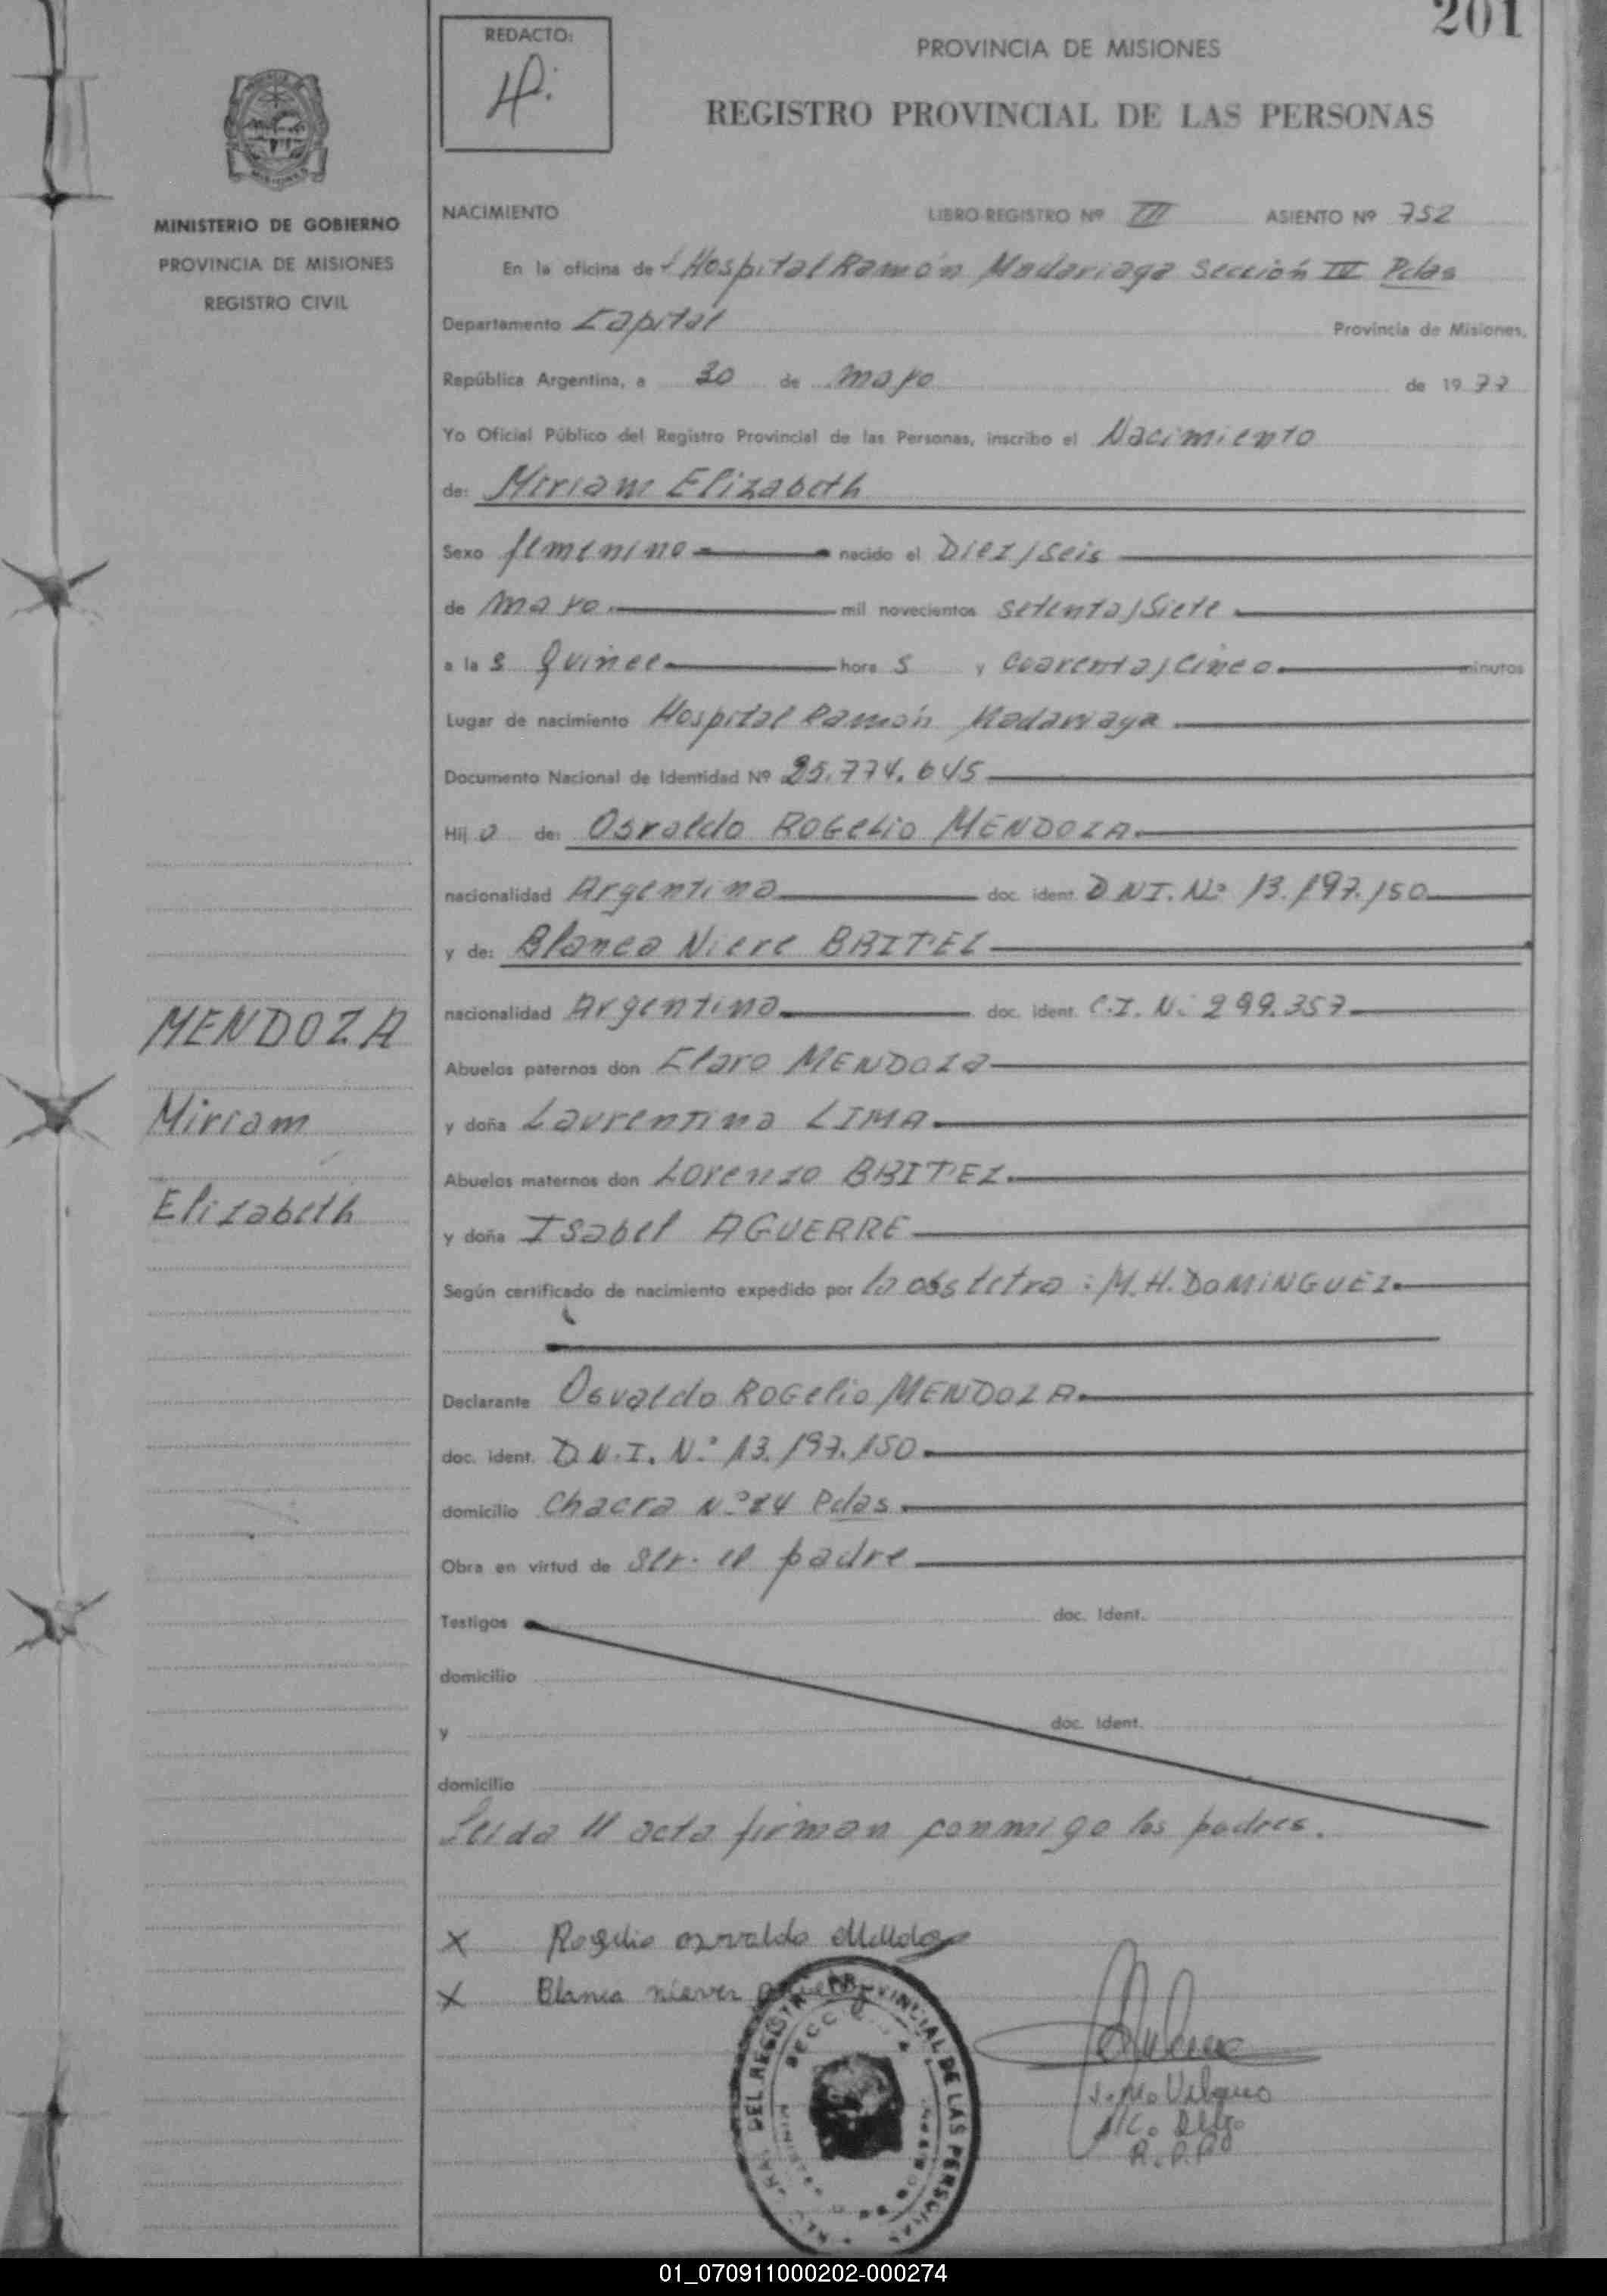 201
REDACTO:
PROVINCIA DE MISIONES
REGISTRO PROVINCIAL DE LAS PERSONAS
MISIONES
MINISTERIO DE GOBIERNO
PROVINCIA DE MISIONES
REGISTRO CIVIL
NACIMIENTO LIBRO-REGISTRO Nº III ASIENTO Nº 752
En la oficina del Hospital Ramón Madariaga Sección III Pdas
Departamento Capital Provincia de Misiones,
República Argentina, a 30 de mayo de 1977
Yo Oficial Público del Registro Provincial de las Personas, inscribo el Nacimiento
de: Miriam Elizabeth
Sexo femenino nacido el Diez y seis
de mayo mil novecientos setenta y Siete
a las Quince horas y cuarenta y cinco minutos
Lugar de nacimiento Hospital Ramón Madariaga
Documento Nacional de Identidad Nº 25.774.645
Hija de: Osvaldo ROGeLio MENDOZA
nacionalidad Argentina doc. ident. D NI. Nº 13.197.150
y de: Blanca Nieve BRITEZ
nacionalidad Argentina doc. ident. C.I. Nº 299.357
Abuelos paternos don Claro MENDOZA
y doña Laurentina LIMA
Abuelos maternos don Lorenzo BRITEZ
y doña Isabel AGUERRE
Según certificado de nacimiento expedido por la obstetra: M.H. DOMINGUEZ
Declarante Osvaldo ROGelio MENDOZA
doc. ident. D.N.I. Nº 13.197.150
domicilio Chacra Nº 84 Pdas
Obra en virtud de ser el padre
Testigos doc. Ident.
domicilio
y doc. Ident.
domicilio
Leída el acta firman conmigo los padres.
MENDOZA
Miriam
Elizabeth
X Rogelio osvaldo
X Blanca niever
DEL REGISTRO PROVINCIAL DE LAS PERSONAS
R.P.P
01_070911000202-000274